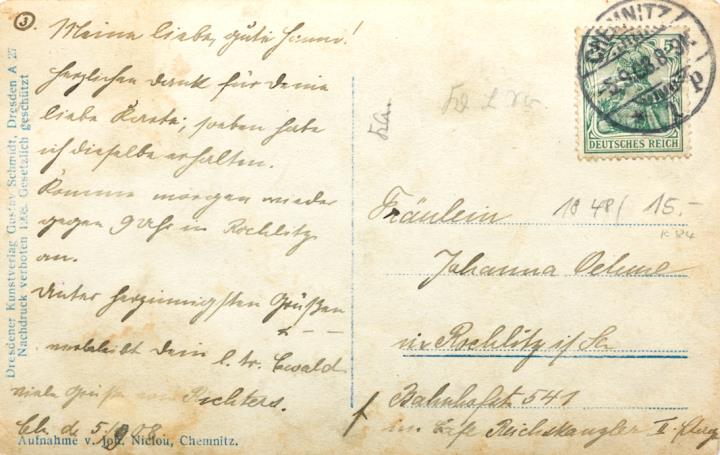 3.
Meine liebe, gute Hanni!
Herzlichen Dank für Deine
liebe Karte, soeben habe
ich dieselbe erhalten.
Komme morgen wieder
gegen 9 Uhr in Rochlitz
an.
Unter herzinnigsten Grüßen
verbleibt Dein l. tr. Ewald
viele Grüße von Richters.
Ch. d. 5/9 08.
Aufnahme v. Joh. Niclou, Chemnitz.
Dresdener Kunstverlag Gustav Schmidt, Dresden A 27
Nachdruck verboten 1908 Gesetzlich geschützt
CHEMNITZ
5.9.08.8-9N
p
* 1
5
DEUTSCHES REICH
Fräulein
1048/ 15.-
K 124
Johanna Oehme
in Rochlitz i/Sa
Bahnhofstr. 541
im Cafe Reichskanzler II. Etag